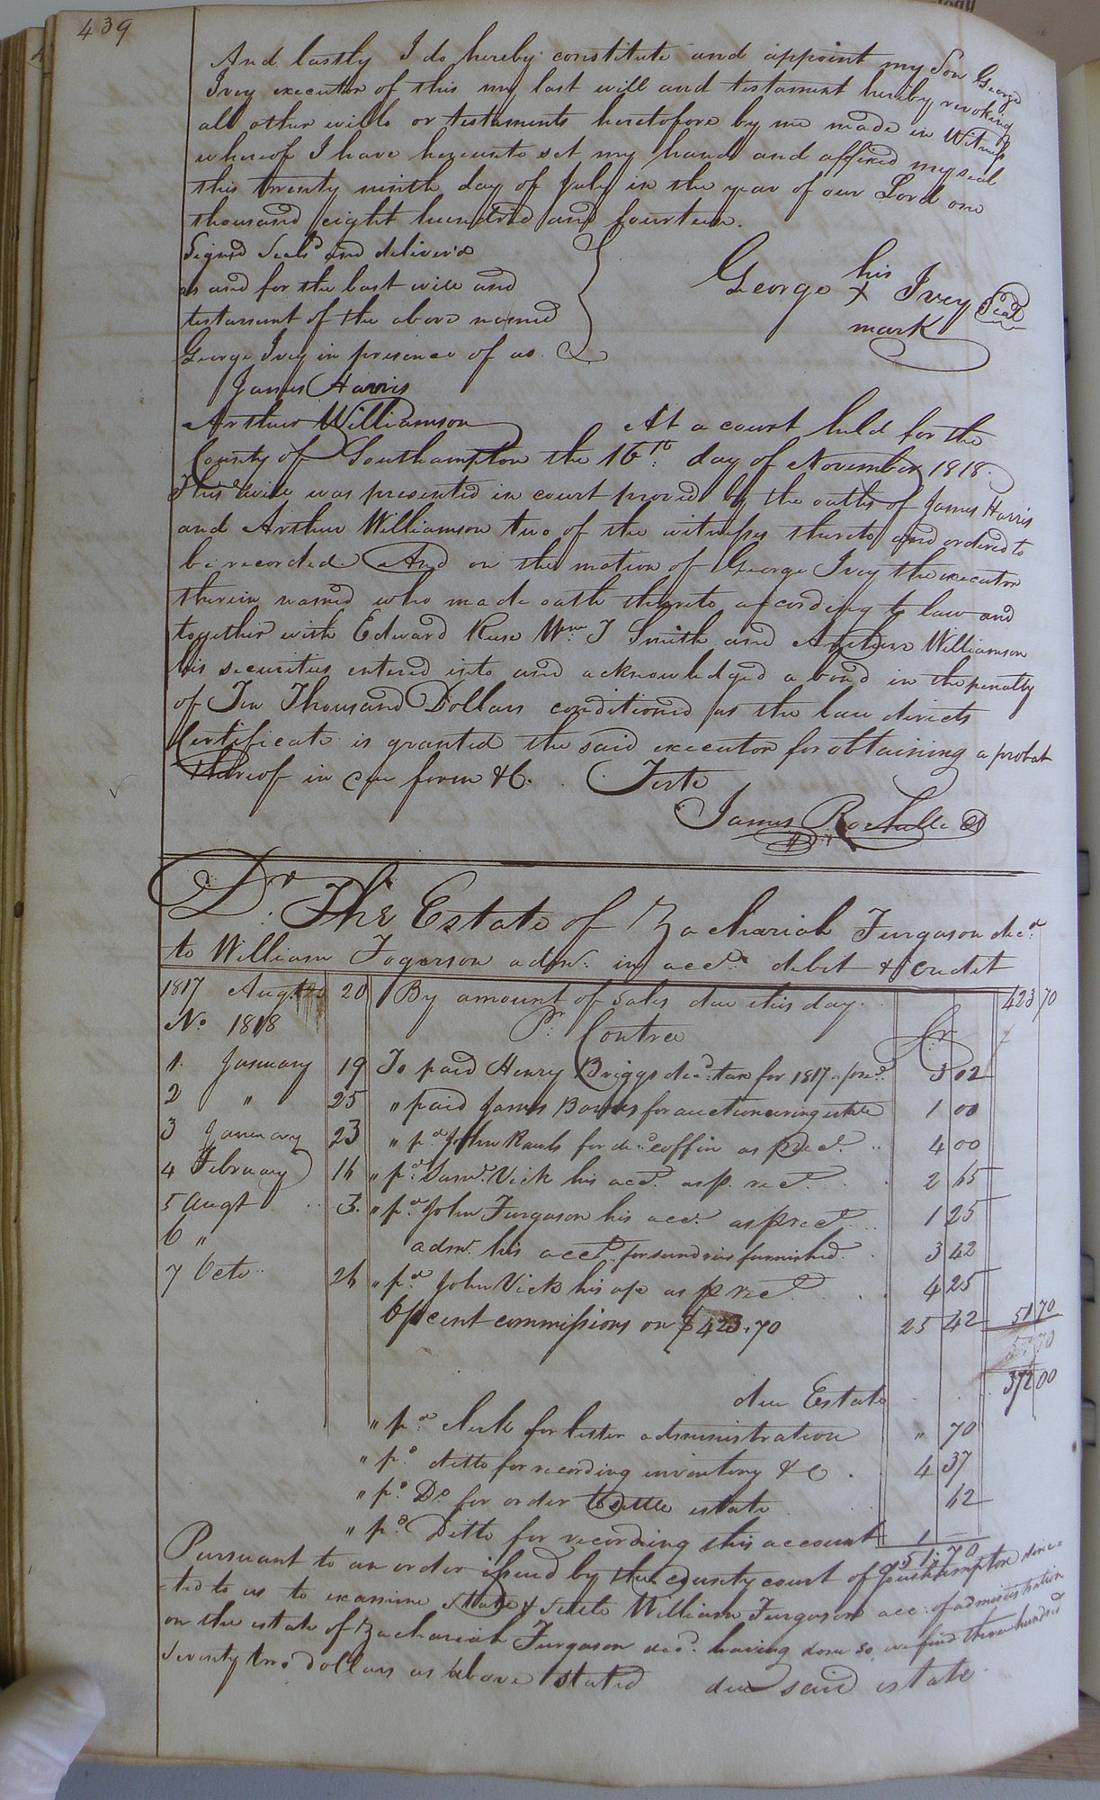 439
And lastly I do hereby constitute and appoint my Son George
Ivey executor of this my last will and testament hereby revoking
all other wills or testaments heretofore by me made in Witness
whereof I have hereunto set my hand and affixed my seal
this twenty ninth day of July in the year of our Lord one
thousand eight hundred and fourteen.
Signed Seal'd and deliver'd
as and for the last will and
testament of the above named
George Ivey in presence of us.
George his + mark Ivey Seal
James Harris
Arthur Williamson
At a court held for the
County of Southampton the 16th day of November 1818.
This Will was presented in court proved by the oaths of James Harris
and Arthur Williamson two of the witnesses thereto and ordered to
be recorded And on the motion of George Ivey the executor
therein named who made oath thereto according to law and
together with Edward Reese Wm J Smith and Arthur Williamson
his securities entered into and acknowledged a bond in the penalty
of Ten Thousand Dollars conditioned as the law directs
Certificate is granted the said executor for obtaining a probat
thereof in due form &C. Teste
James Rochelle
Dr. The Estate of Zachariah Furgason decd
to William admr. in acct. debit & credit
1817 Augt 20 By amount of Sales due this day. 423 70
No 1818 Pr Contra Cr
1 January 19 To paid Henry Briggs decd. tax for 1817 3 02
2 " 25 " paid James for auctioneering estate 1 00
3 January 23 " pd John for decd. coffin as p rect. 4 00
4 February 16 " pd Saml. Vick his acct. as p. rect. 2 65
5 Augt 3. " pd John Furgason his acct. as p rect. 1 25
6 " admr. his acct. for sundries furnished 3 42
7 Octo. 26 " pd John Vick his a/c as p rect 4 25
6 p cent commissions on $423.70 25 42 51 70
due Estate 372 00
" pd Clerk for letter administration " 70
" pd ditto for recording inventory &C. 4 37
" pd Do for order to settle estate 62
" pd Ditto for recording this account 1
51.70
Pursuant to an order issued by the county court of Southampton direc-
ted to us to examine state & settle William Furgason acc. of administration
on the estate of Zachariah Furgason decd. having done so we find three hundred
Seventy two dollars as above stated due said estate